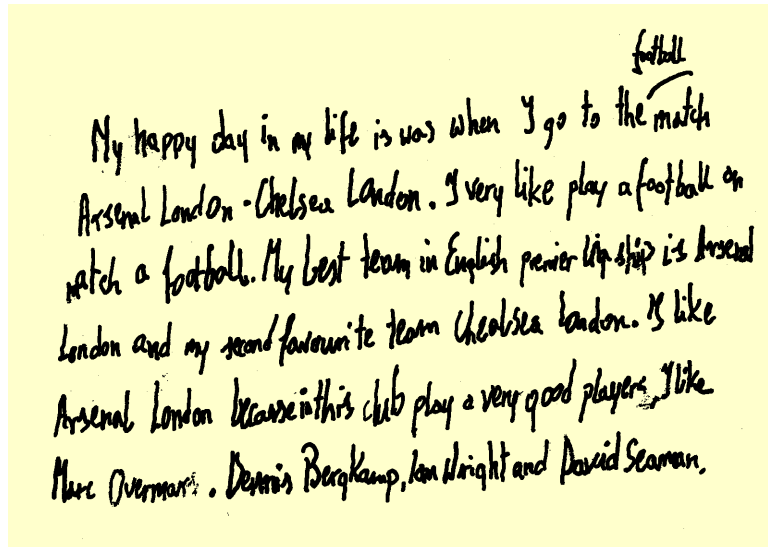 football
My happy day in my life is was when I go to the match
Arsenal London - Chelsea London. I very like play a football on
match a football. My best team in English premier is Arsenal
London and my second favourite team Chealsea London. I like
Arsenal London because in this club play a very good players. I like
Marc Overmars. Dennis Bergkamp, Ian Wright and David Seaman.